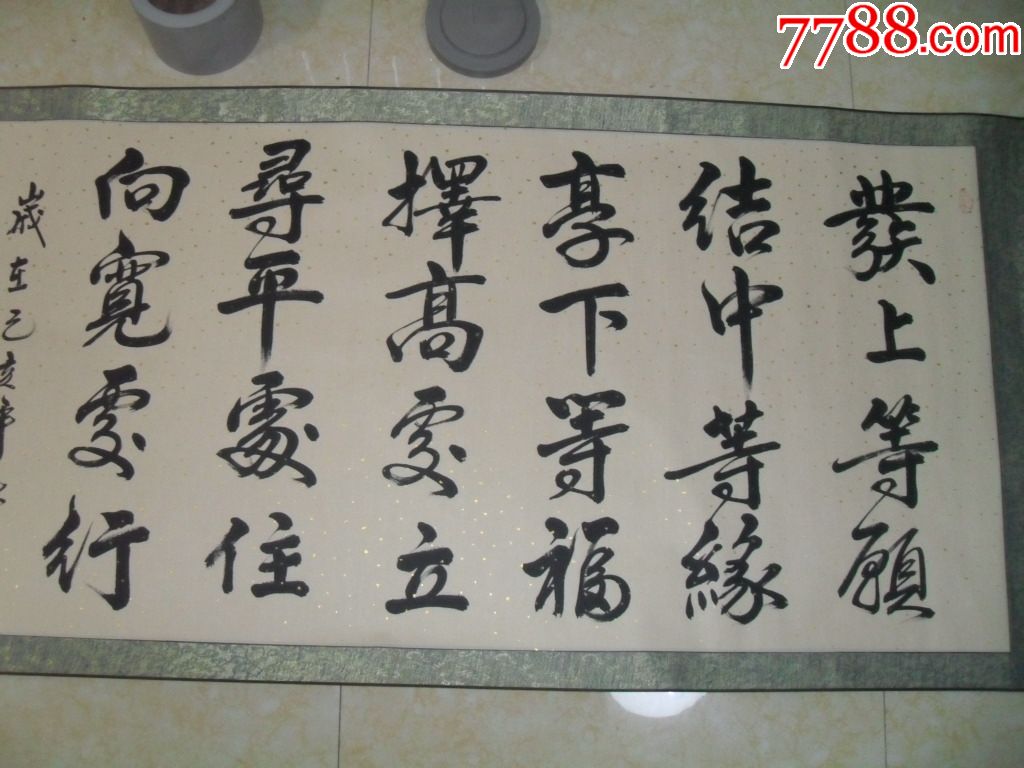 7788.com
發上等願
結中等緣
享下等福
擇高處立
尋平處住
向寬處行
歲在己亥年